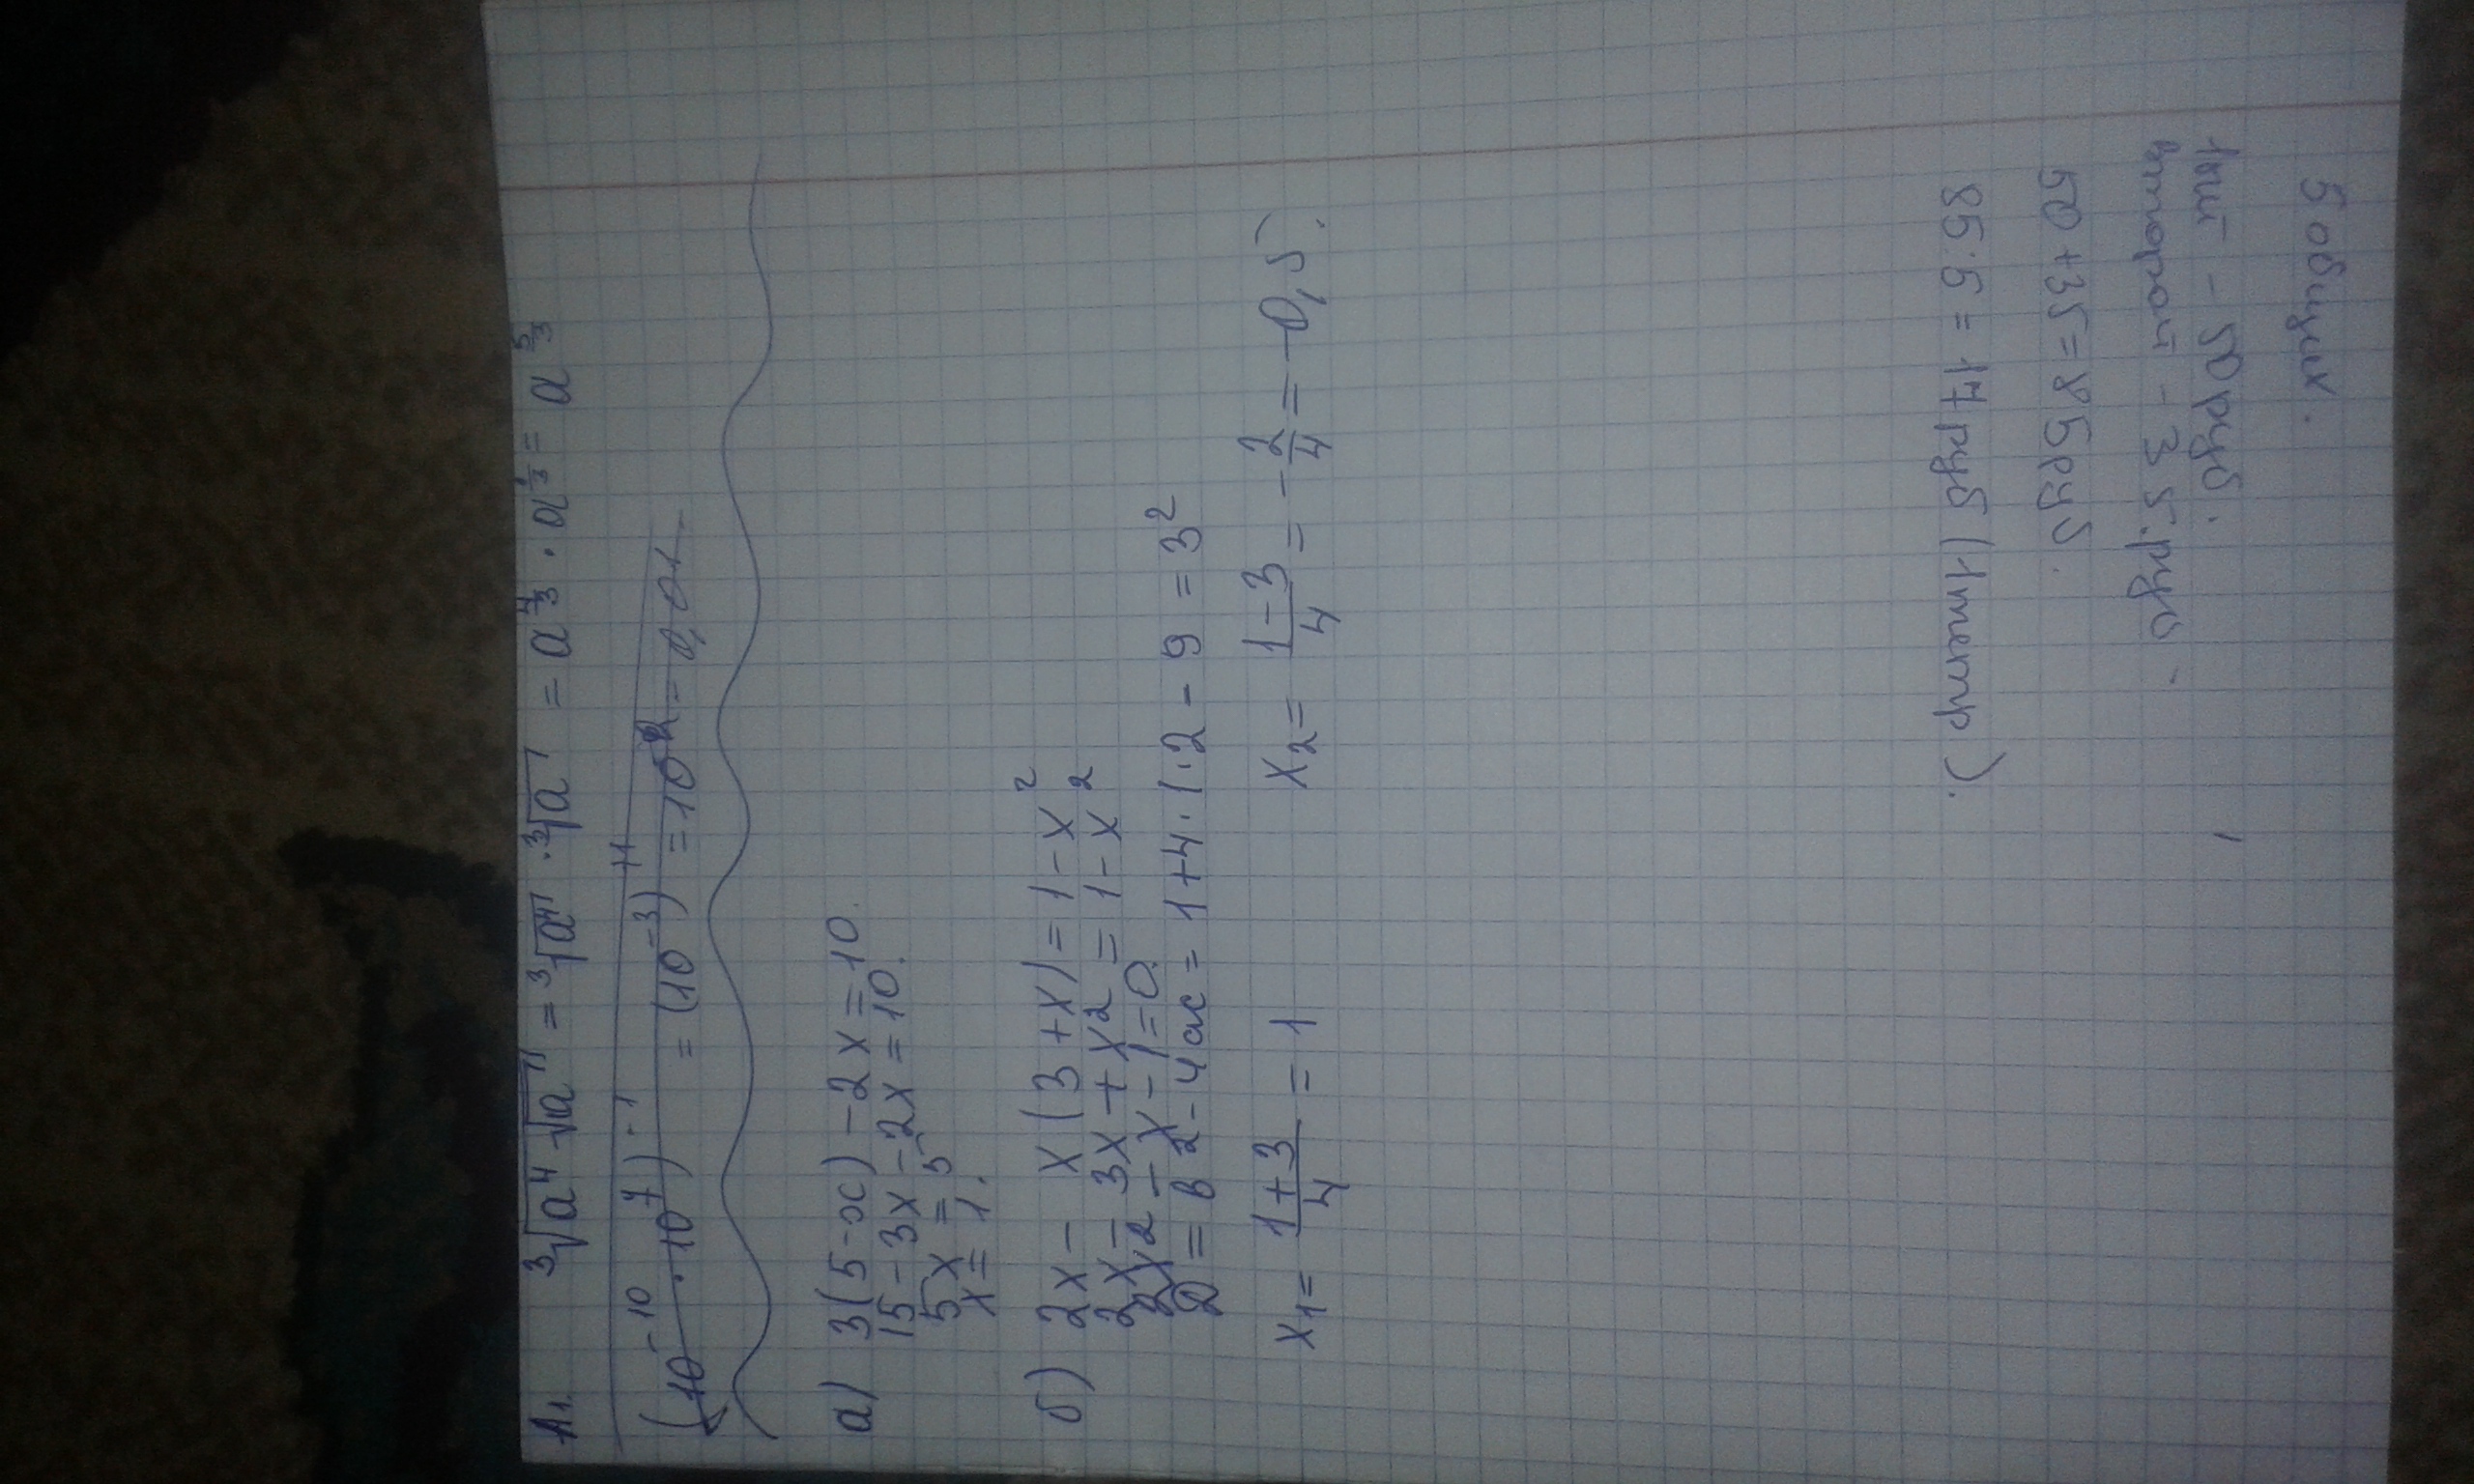 А1. ³√(a⁴√a) = ³√a⁴ · ³√a = a^(4/3) · a^(1/3) = a^(5/3)
(10⁻¹⁰ · 10⁷)⁻¹ = (10⁻³)⁺¹ = 10⁻² = 0,01
а) 3(5-x) - 2x = 10.
15 - 3x - 2x = 10.
5x = 5
x = 1.
б) 2x - x(3+x) = 1 - x²
2x - 3x + x² = 1 - x²
2x² - x - 1 = 0.
D = в² - 4ac = 1 + 4·1·2 - 9 = 3²
x₁ = (1+3)/4 = 1 x₂ = (1-3)/4 = -2/4 = -0,5.
5 общих.
1ый - 50 руб.
второй - 35 руб
50+35=85руб.
85:5 = 17руб (1литр).